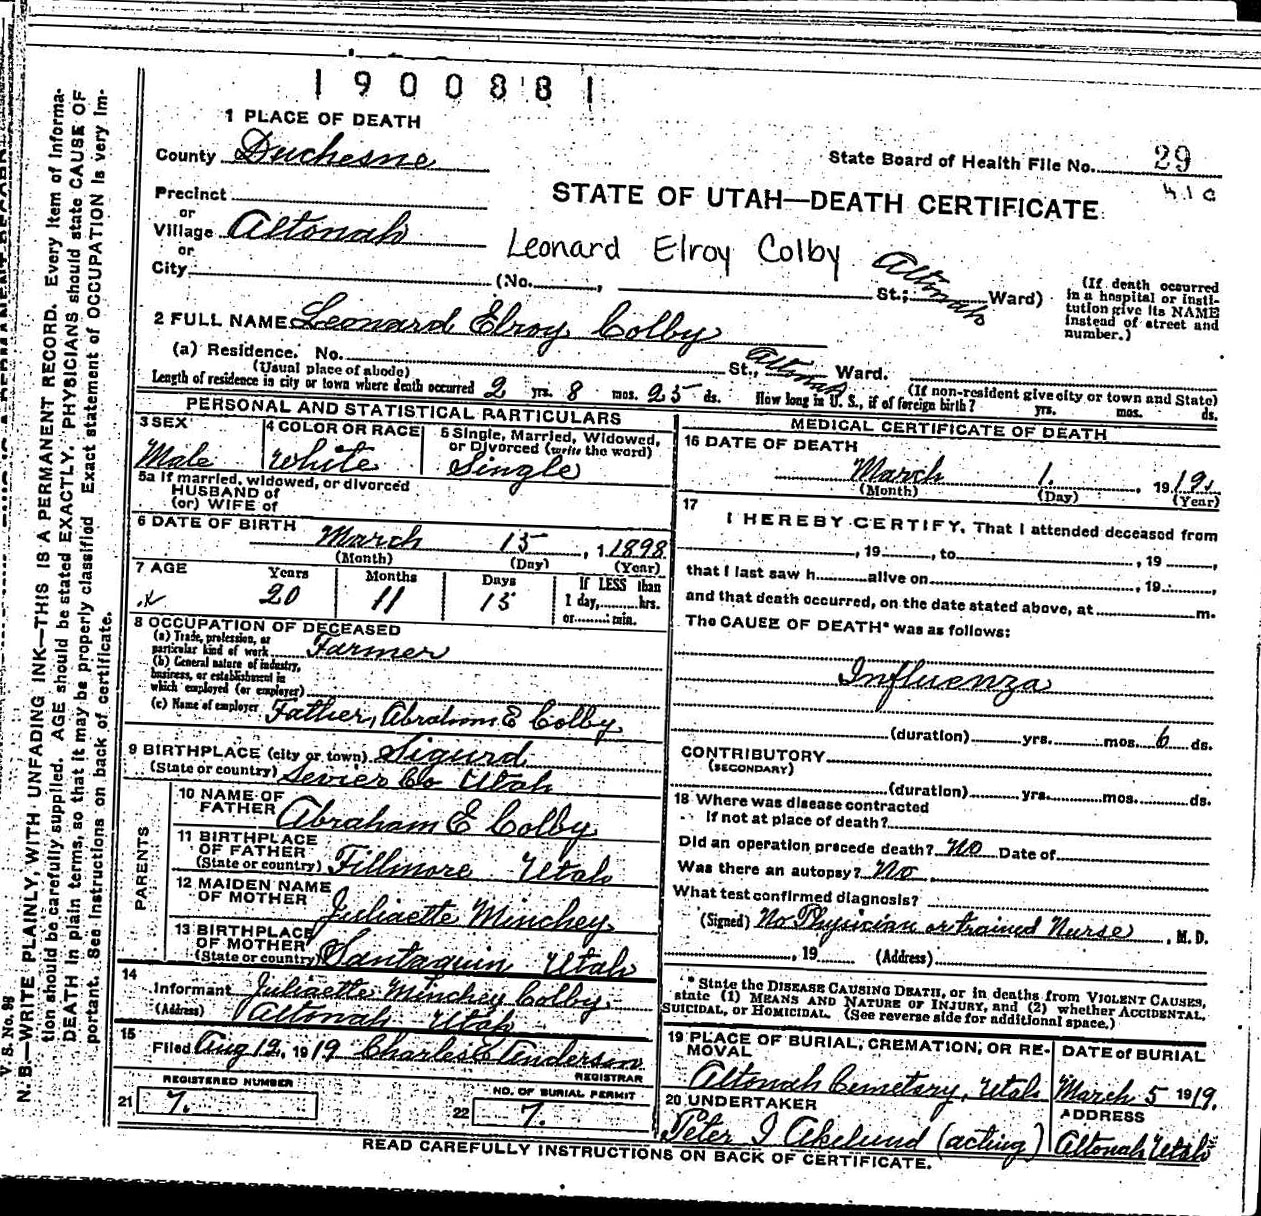 1900881
1 PLACE OF DEATH
County Duchesne
State Board of Health File No. 29
Precinct
STATE OF UTAH—DEATH CERTIFICATE
or
Village Altonah
or
Leonard Elroy Colby
City (No. , St.; Altonah Ward)
(If death occurred in a hospital or institution give its NAME instead of street and number.)
2 FULL NAME Leonard Elroy Colby
(a) Residence. No. St., Altonah Ward.
(Usual place of abode)
(If non-resident give city or town and State)
Length of residence in city or town where death occurred 2 yrs. 8 mos. 25 ds. How long in U. S., if of foreign birth? yrs. mos. ds.
PERSONAL AND STATISTICAL PARTICULARS
3 SEX
Male
4 COLOR OR RACE
White
5 Single, Married, Widowed, or Divorced (write the word)
Single
5a If married, widowed, or divorced
HUSBAND of
(or) WIFE of
6 DATE OF BIRTH
March 15, 1 1898
(Month) (Day) (Year)
7 AGE
Years Months Days
20 11 15
If LESS than
1 day, hrs.
or min.
8 OCCUPATION OF DECEASED
(a) Trade, profession, or
particular kind of work Farmer
(b) General nature of industry,
business, or establishment in
which employed (or employer)
(c) Name of employer Father, Abraham E Colby
9 BIRTHPLACE (city or town) Sigurd
(State or country) Sevier Co Utah
PARENTS
10 NAME OF
FATHER Abraham E Colby
11 BIRTHPLACE
OF FATHER
(State or country) Fillmore Utah
12 MAIDEN NAME
OF MOTHER Juliaette Minchey
13 BIRTHPLACE
OF MOTHER
(State or country) Santaquin Utah
14
Informant Juliaette Minchey Colby
(Address) Altonah Utah
15
Filed Aug 12, 1919 Charles C Anderson
REGISTRAR
REGISTERED NUMBER
21 7.
NO. OF BURIAL PERMIT
22 7.
MEDICAL CERTIFICATE OF DEATH
16 DATE OF DEATH
March 1. , 1919
(Month) (Day) (Year)
17
I HEREBY CERTIFY, That I attended deceased from
, 19 , to , 19 ,
that I last saw h alive on , 19 ,
and that death occurred, on the date stated above, at m.
The CAUSE OF DEATH* was as follows:
Influenza
(duration) yrs. mos. 6 ds.
CONTRIBUTORY
(SECONDARY)
(duration) yrs. mos. ds.
18 Where was disease contracted
If not at place of death?
Did an operation precede death? No Date of
Was there an autopsy? No
What test confirmed diagnosis?
(Signed) No Physician or trained Nurse , M.D.
, 19 (Address)
* State the DISEASE CAUSING DEATH, or in deaths from VIOLENT CAUSES,
state (1) MEANS AND NATURE OF INJURY, and (2) whether ACCIDENTAL,
SUICIDAL, or HOMICIDAL. (See reverse side for additional space.)
19 PLACE OF BURIAL, CREMATION, OR REMOVAL
Altonah Cemetary, Utah
DATE of BURIAL
March 5 1919.
20 UNDERTAKER
Peter J Akelund (acting)
ADDRESS
Altonah Utah
READ CAREFULLY INSTRUCTIONS ON BACK OF CERTIFICATE.
V. S. No. 98
N. B—WRITE PLAINLY, WITH UNFADING INK—THIS IS A PERMANENT RECORD. Every item of informa-
tion should be carefully supplied. AGE should be stated EXACTLY. PHYSICIANS should state CAUSE OF
DEATH in plain terms, so that it may be properly classified. Exact statement of OCCUPATION is very im-
portant. See instructions on back of certificate.